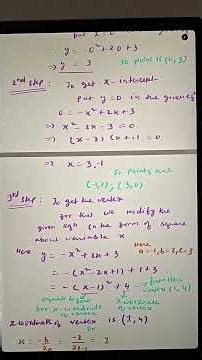 put x = 0
y = -0² + 2·0 + 3
⇒ y = 3 so point is (0, 3)
2nd step: To get x-intercept
put y = 0 in the given eqn
0 = -x² + 2x + 3
⇒ x² - 2x - 3 = 0
⇒ (x - 3)(x + 1) = 0
⇒ x = 3, -1
so points are
(-1, 0), (3, 0)
3rd step: To get the vertex
for this we modify the
given eqn in the form of square
about variable x
Here y = -x² + 2x + 3
Here a = -1, b = 2, c = 3
= -(x² - 2x + 1) + 1 + 3
= -(x - 1)² + 4 → from Here
vertex (1, 4)
x-coordinate
of vertex
x-coordinate of vertex is (1, 4)
or
x = -b/2a